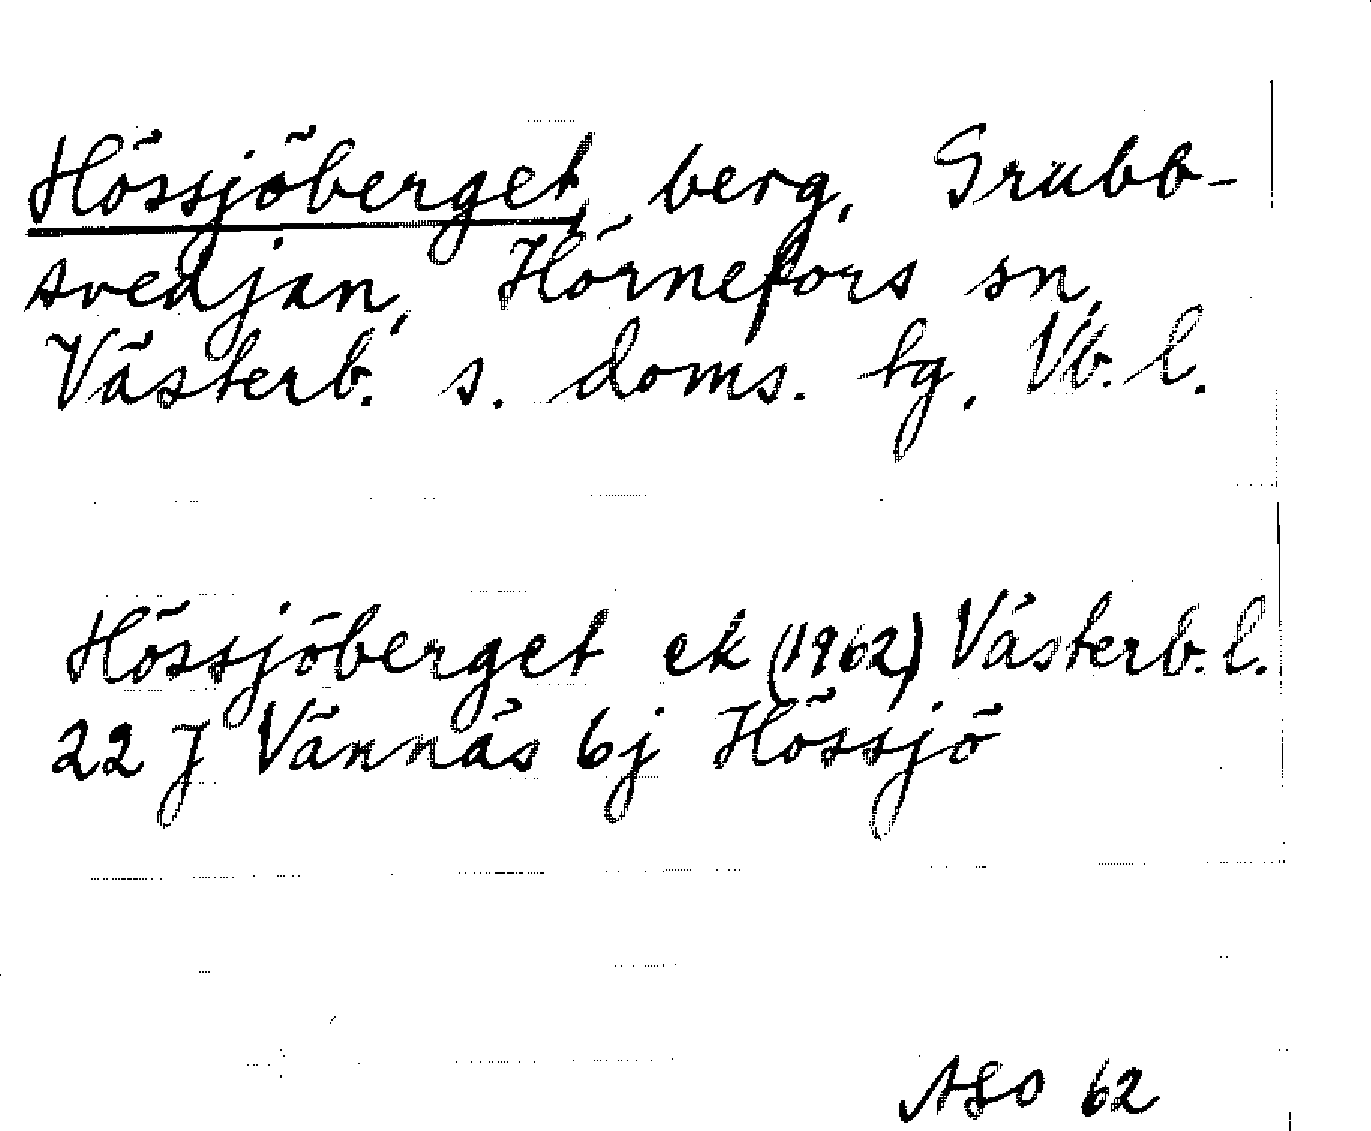 Hössjöberget, berg, Grubb-
svedjan, Hörnefors sn,
Västerb. s. doms. tg, Vb. l.
Hössjöberget ek (1962) Västerb. l.
22 J Vännäs 6j Hössjö
ASO 62